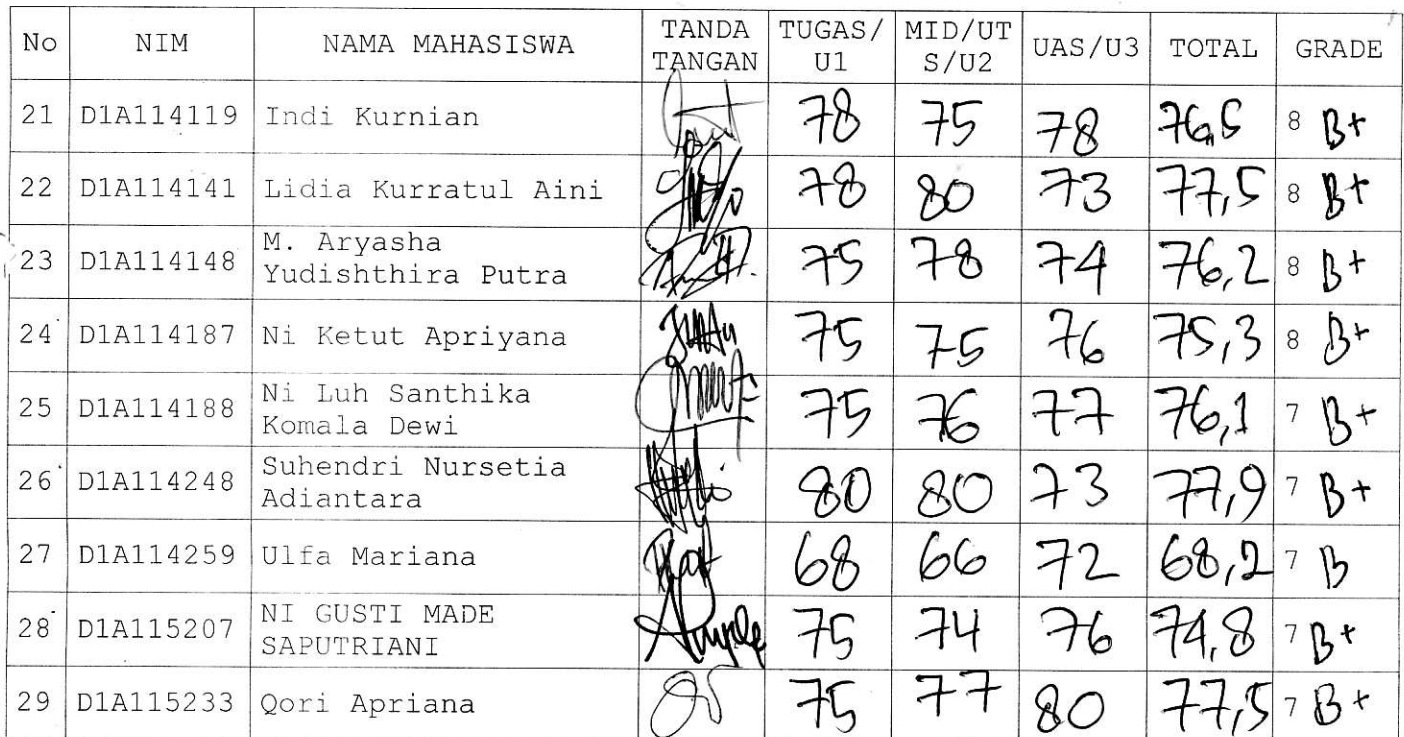 No NIM NAMA MAHASISWA TANDA TANGAN TUGAS/ U1 MID/UT S/U2 UAS/U3 TOTAL GRADE
21 D1A114119 Indi Kurnian 78 75 78 76,5 8 B+
22 D1A114141 Lidia Kurratul Aini 78 80 73 77,5 8 B+
23 D1A114148 M. Aryasha Yudishthira Putra 75 78 74 76,2 8 B+
24 D1A114187 Ni Ketut Apriyana 75 75 76 75,3 8 B+
25 D1A114188 Ni Luh Santhika Komala Dewi 75 76 77 76,1 7 B+
26 D1A114248 Suhendri Nursetia Adiantara 80 80 73 77,9 7 B+
27 D1A114259 Ulfa Mariana 68 66 72 68,2 7 B
28 D1A115207 NI GUSTI MADE SAPUTRIANI 75 74 76 74,8 7 B+
29 D1A115233 Qori Apriana 75 77 80 77,5 7 B+